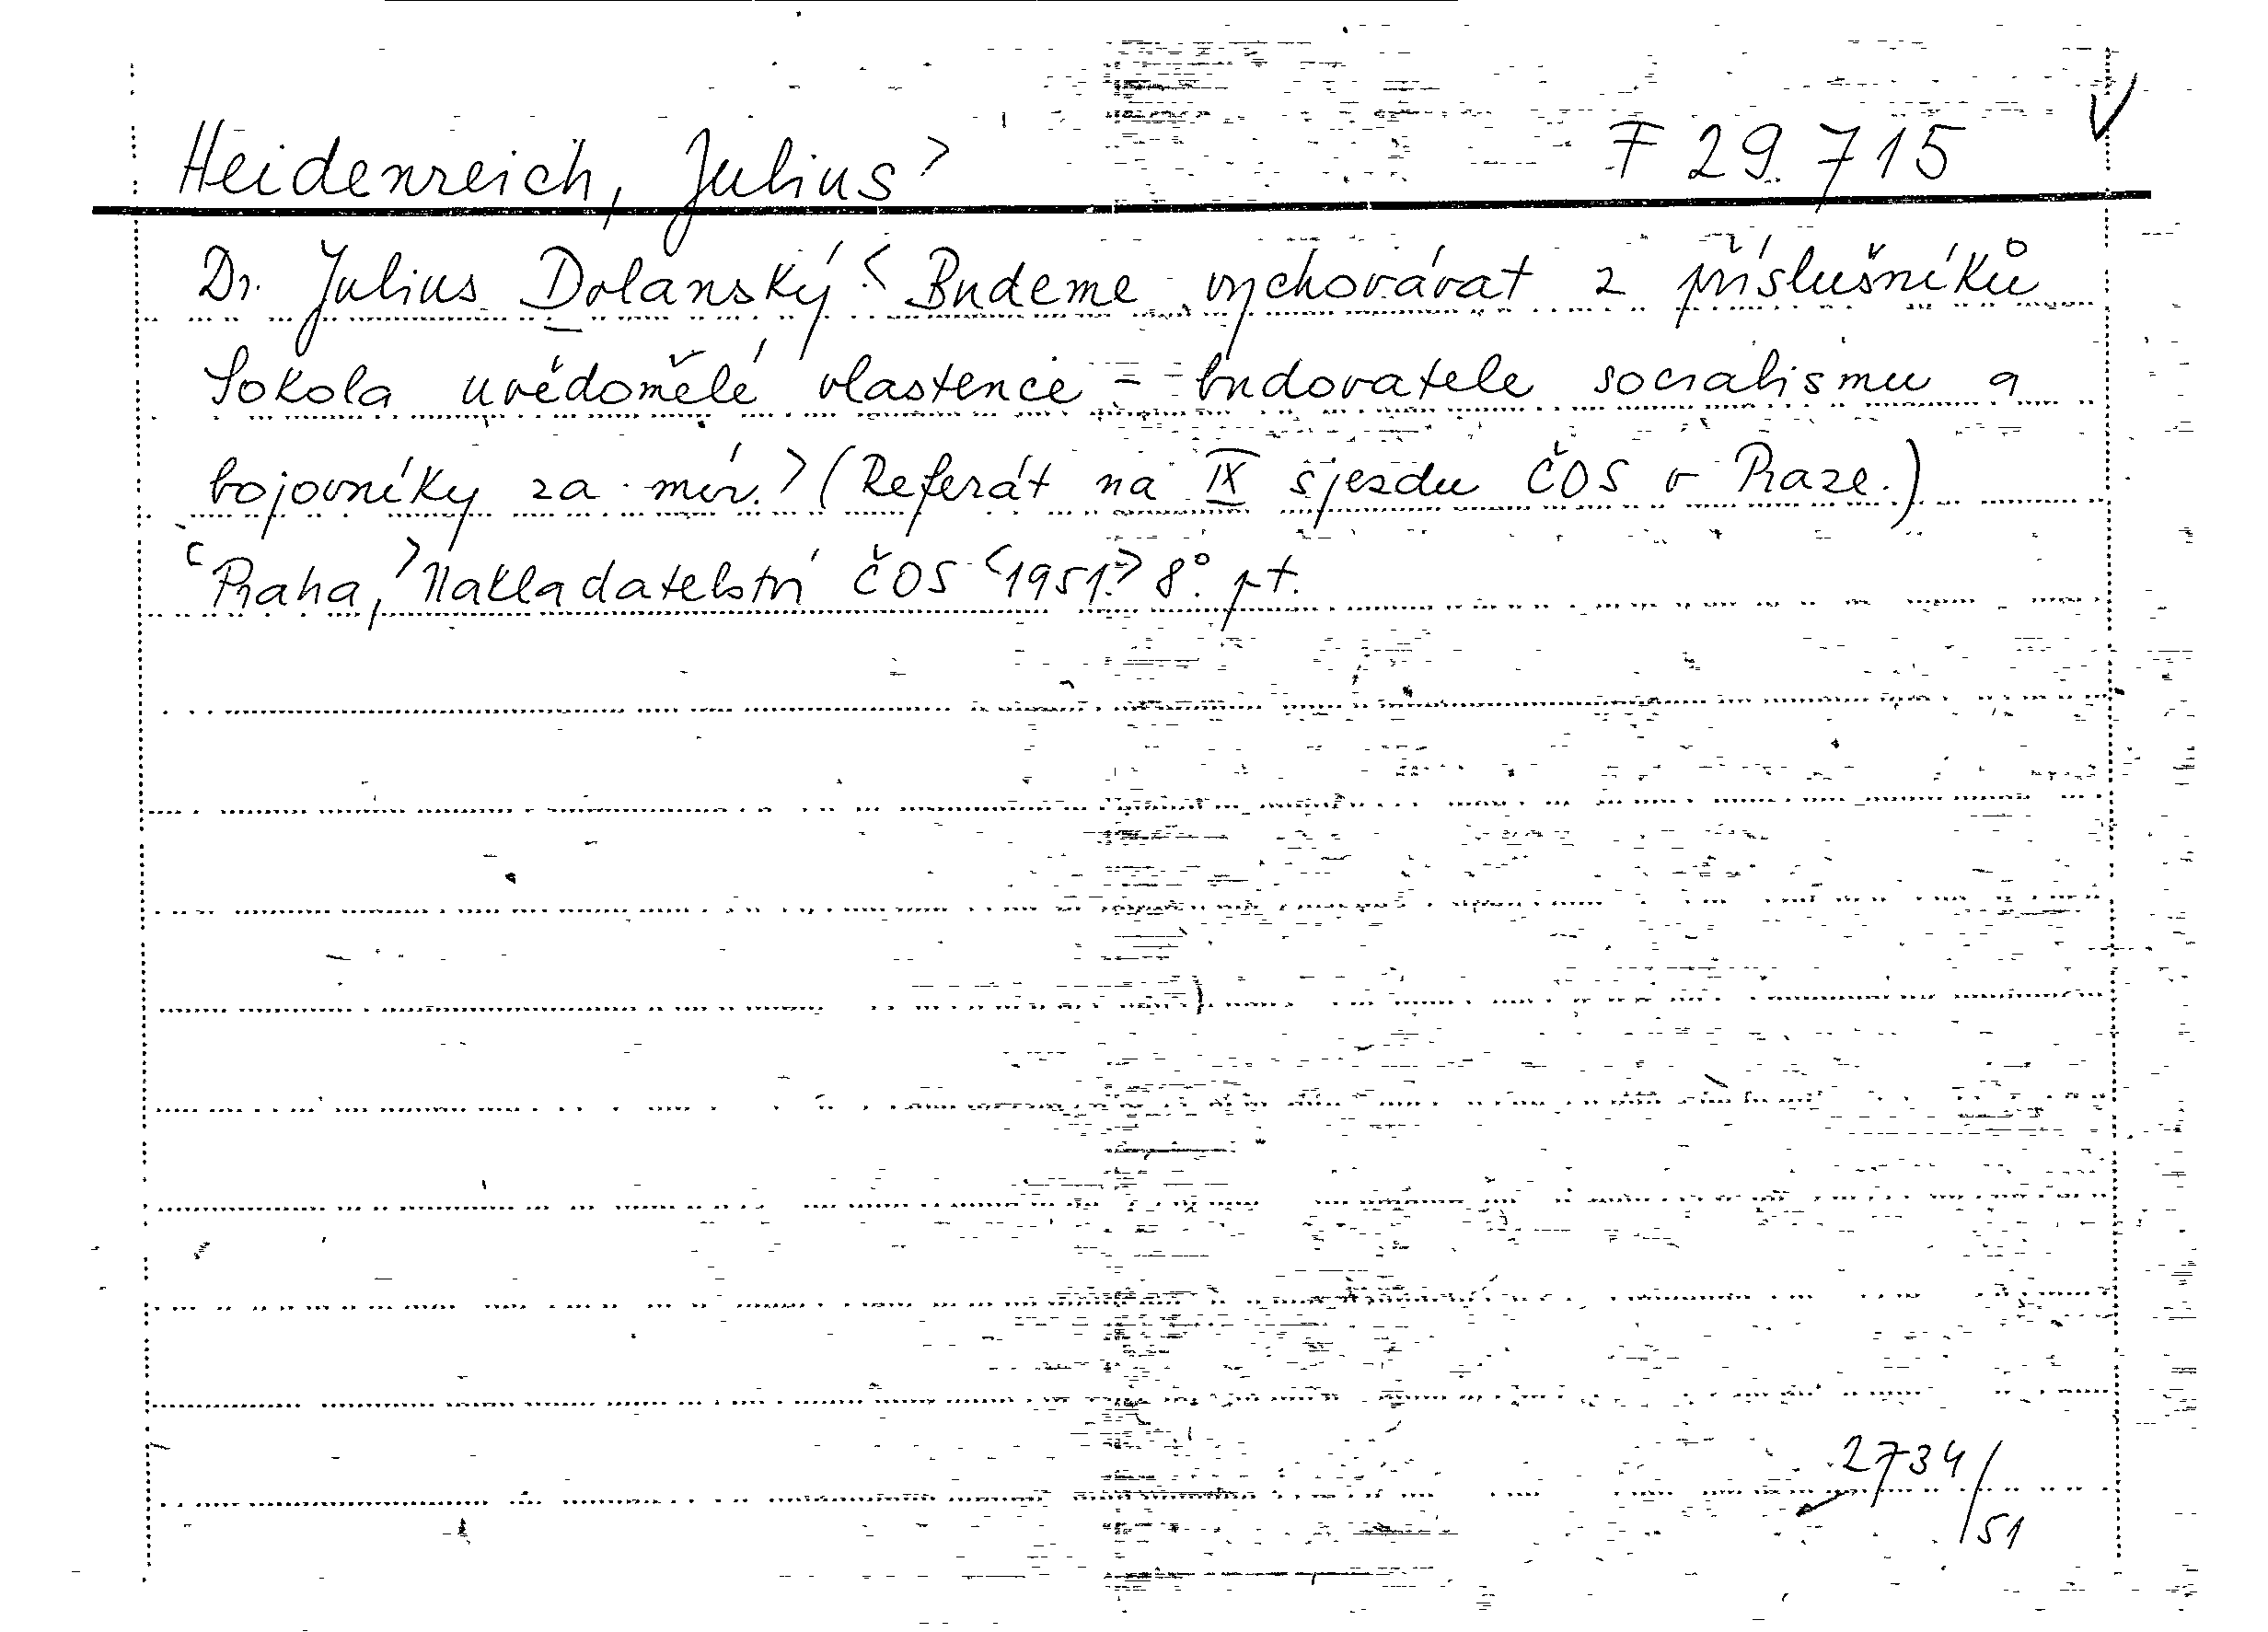 Heidenreich, Julius> F 29.715
Dr. Julius Dolanský.< Budeme vychovávat z příslušníků
Sokola uvědomělé vlastence - budovatele socialismu a
bojovníky za mír.> (Referát na IX sjezdu ČOS v Praze.)
<Praha,> Nakladatelství ČOS <1951.> 8°. pt.
2734/51